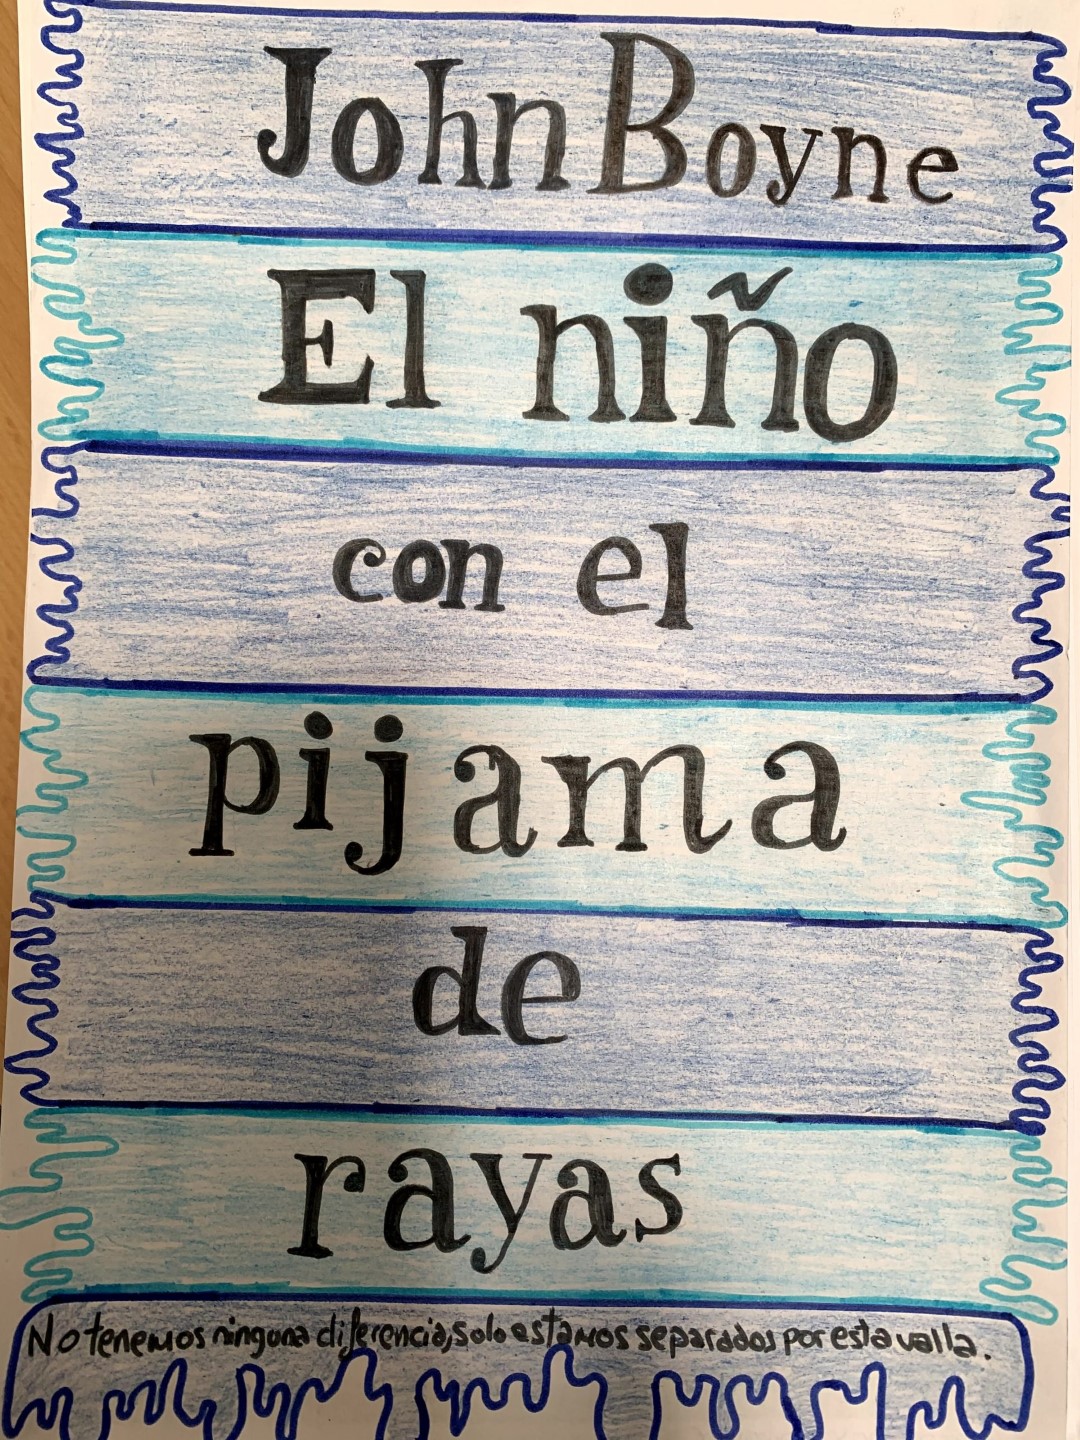 John Boyne
El niño
con el
pijama
de
rayas
No tenemos ninguna diferencia, solo estamos separados por esta valla.